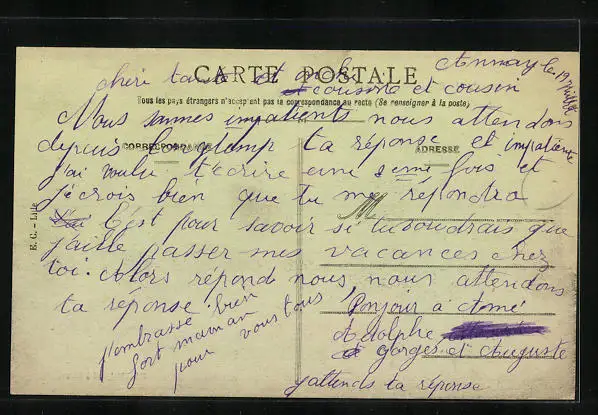 Annay le 19 juillet
CARTE POSTALE
cheri tante et oncle cousine et cousin
Tous les pays étrangers n'acceptent pas la correspondance au recto (Se renseigner à la poste)
Nous sommes impatients nous attendons
depuis longtemp ta réponse et impatiente
CORRESPONDANCE
ADRESSE
j'ai voulu t'écrire une 2eme fois et
jécrois bien que tu me répondra
M
C'est pour savoir si tu voudrais que
j'aille passer mes vacances chez
toi. Alors répond nous, nous attendons
ta reponse.
j'embrasse bien
fort maman
pour vous tous
Bonjour à Aimé
Adolphe,
et Gorges et Auguste
jattends ta réponse
E. C. - Lille